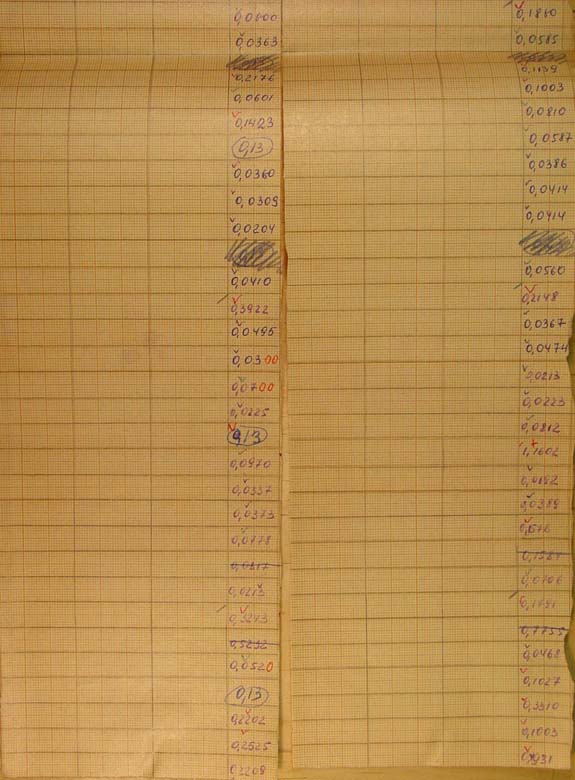 0,0363
0,2176
0,0601
0,1423
0,13
0,0360
0,0309
0,0204
0,0410
0,3922
0,0495
0,0300
0,0700
0,0225
0,13
0,0970
0,0337
0,0373
0,0778
0,0213
0,3243
0,5232
0,0520
0,13
0,2202
0,2525
0,2209
0,1880
0,0585
0,1139
0,1003
0,0810
0,0587
0,0386
0,0414
0,0414
0,0560
0,2148
0,0367
0,0474
0,0213
0,0223
0,0812
1,1602
0,0192
0,0389
0,1581
0,0706
0,1781
0,7755
0,0468
0,1027
0,3310
0,1003